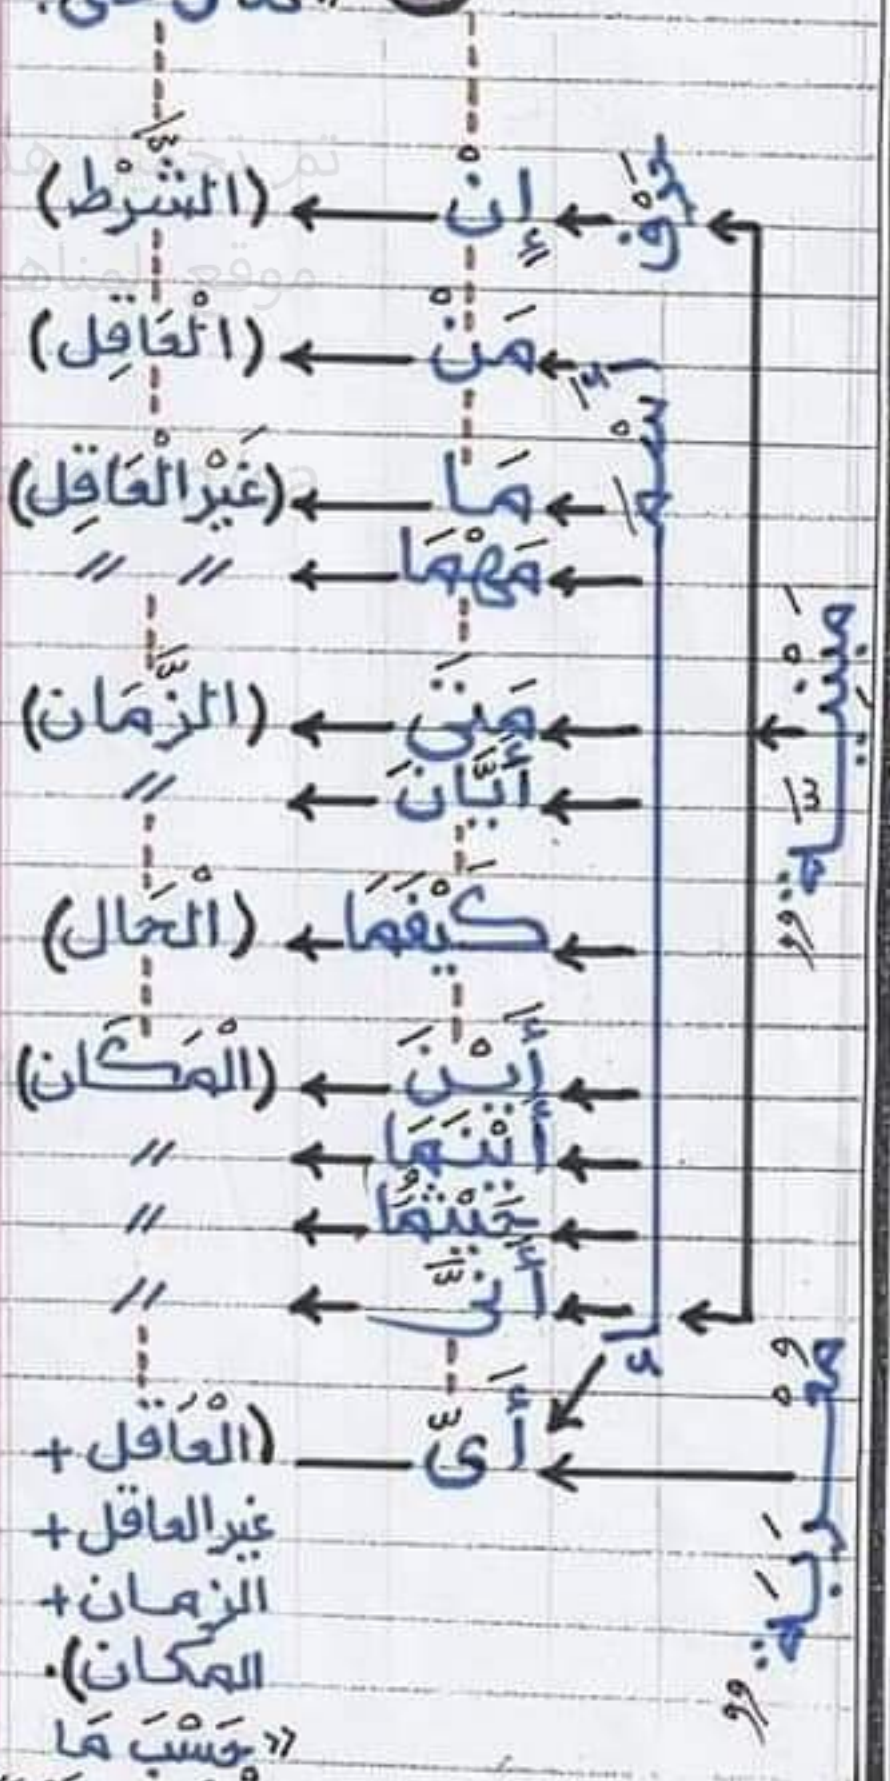 حَرْف إِنْ (الشَّرْط)
اسْم مَنْ (الْعَاقِل)
مَا (غَيْر الْعَاقِل)
مَهْمَا 〃 〃
مَبْنِيَّة
مَتَى (الزَّمَان)
أَيَّانَ 〃
كَيْفَمَا (الْحَال)
أَيْنَ (الْمَكَان)
أَيْنَمَا 〃
حَيْثُمَا 〃
أَنَّى 〃
مُعْرَبَة
أَيّ (الْعَاقل +
غير العاقل +
الزمان +
المكان).
«حَسْبَ مَا